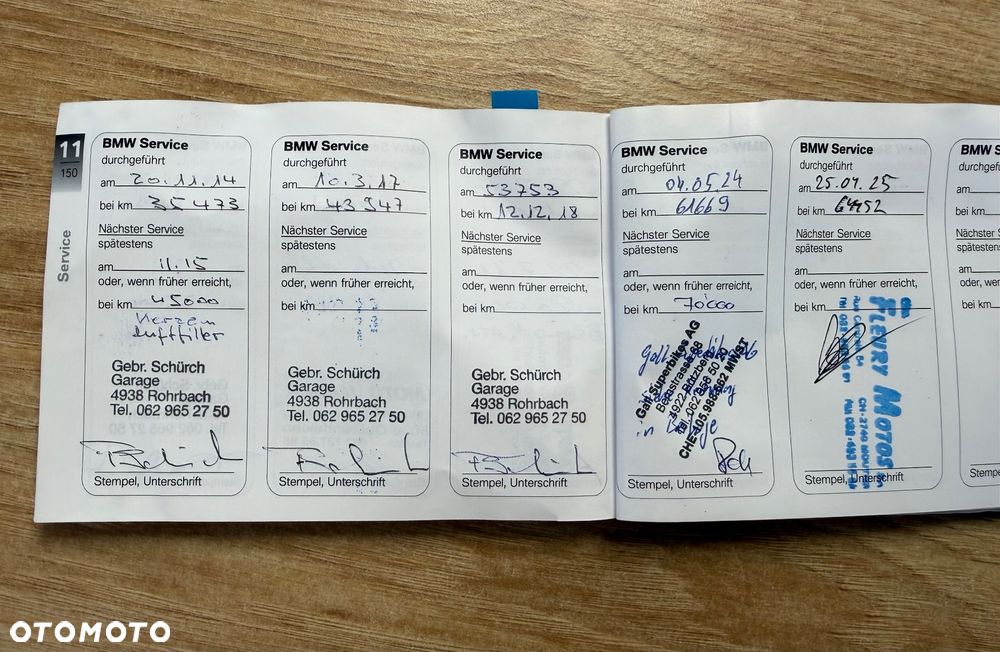 11
150
Service
BMW Service
durchgeführt
am 20.11.14
bei km 35473
Nächster Service
spätestens
am 11.15
oder, wenn früher erreicht,
bei km 45000
Kerzen
Luftfilter
Gebr. Schürch
Garage
4938 Rohrbach
Tel. 062 965 27 50
Stempel, Unterschrift
BMW Service
durchgeführt
am 10.3.17
bei km 43947
Nächster Service
spätestens
am
oder, wenn früher erreicht,
bei km
Gebr. Schürch
Garage
4938 Rohrbach
Tel. 062 965 27 50
Stempel, Unterschrift
BMW Service
durchgeführt
am 53753
bei km 12.12.18
Nächster Service
spätestens
am
oder, wenn früher erreicht,
bei km
Gebr. Schürch
Garage
4938 Rohrbach
Tel. 062 965 27 50
Stempel, Unterschrift
BMW Service
durchgeführt
am 04.05.24
bei km 61669
Nächster Service
spätestens
am
oder, wenn früher erreicht,
bei km 70'000
Gall Superbikes AG
CHE-105.986.662 MWST
in
Stempel, Unterschrift
BMW Service
durchgeführt
am 25.04.25
bei km
Nächster Service
spätestens
am
oder, wenn früher erreicht,
bei km
FLEURY MOTOS
Stempel, Unterschrift
BMW S
durchgefü
am
bei km
Nächster S
spätestens
am
oder, wenn
bei km
Stempel,
OTOMOTO